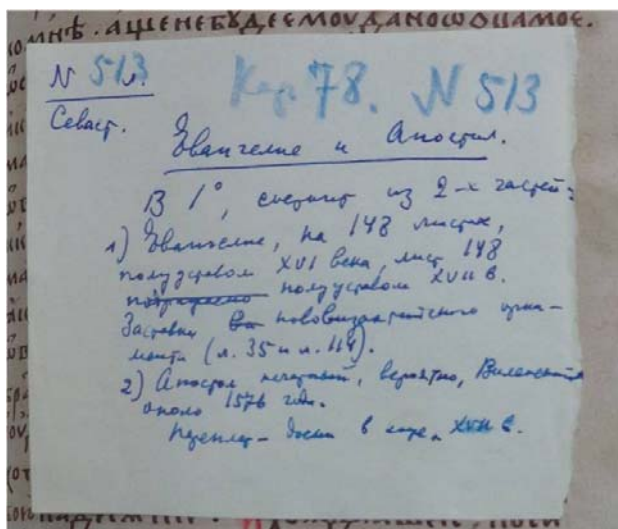 мнѣ. аще не бꙋдеемоу дано ѿ оца моє.
N 513 л. Кор. 78. N 513
Севаст.
Евангелие и Апостол.
В 1°, состоит из 2-х частей:
1) Евангелие, на 148 листах,
полууставом XVI века, лист 148
полууставом XVII в.
Заставки нововизантийского орна-
мента (л. 35 и л. 114).
2) Апостол печатный, вероятно, Виленский
около 1576 года.
Переплет – доски в коже, XVII в.